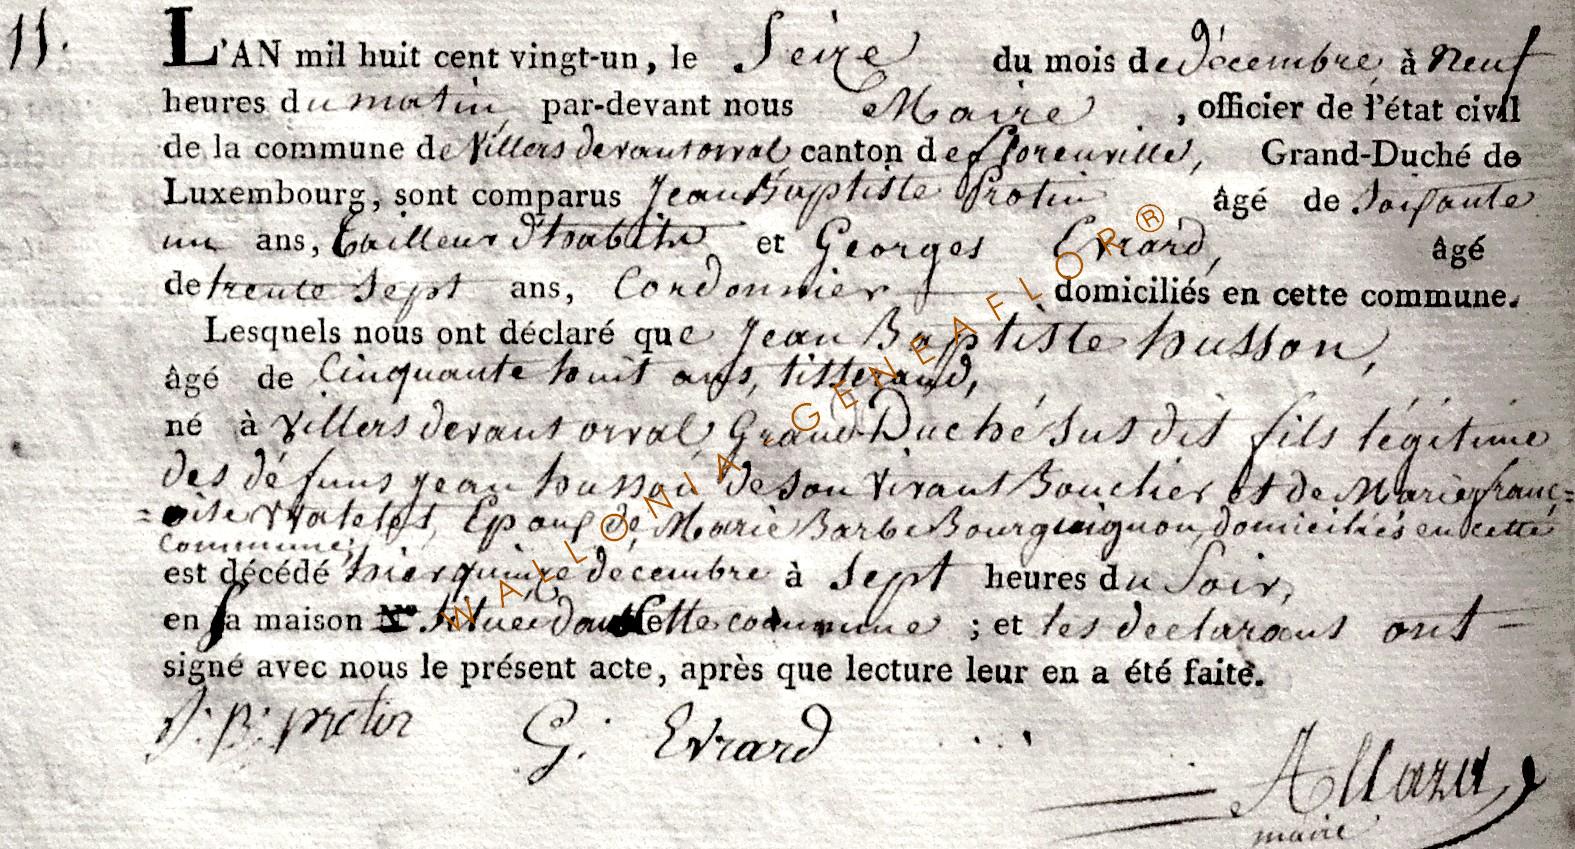 11.
L'AN mil huit cent vingt-un, le Seize du mois de décembre, à Neuf
heures du matin, par-devant nous Maire, officier de l'état civil
de la commune de Villers devant orval, canton de florenville, Grand-Duché de
Luxembourg, sont comparus Jean Baptiste Protin âgé de Soixante
un ans, tailleur d'habits et Georges Evrard, âgé
de trente sept ans, Cordonnier domiciliés en cette commune.
Lesquels nous ont déclaré que Jean Baptiste husson,
âgé de Cinquante huit ans, tisserand,
né à Villers devant orval, Grand-Duché sus dit fils légitime
des défuns Jean husson de son vivant Boucher et de Marie franç=
=oise Watelet, Epoux de Marie Barbe Bourguignon, domiciliés en cette
commune,
est décédé hier quinze decembre à sept heures du soir,
en sa maison N.º située dans Cette commune ; et les declarans ont
signé avec nous le présent acte, après que lecture leur en a été faite.
J: B: protin G: Evrard
maire
WALLONIA-GENEAFLOR®